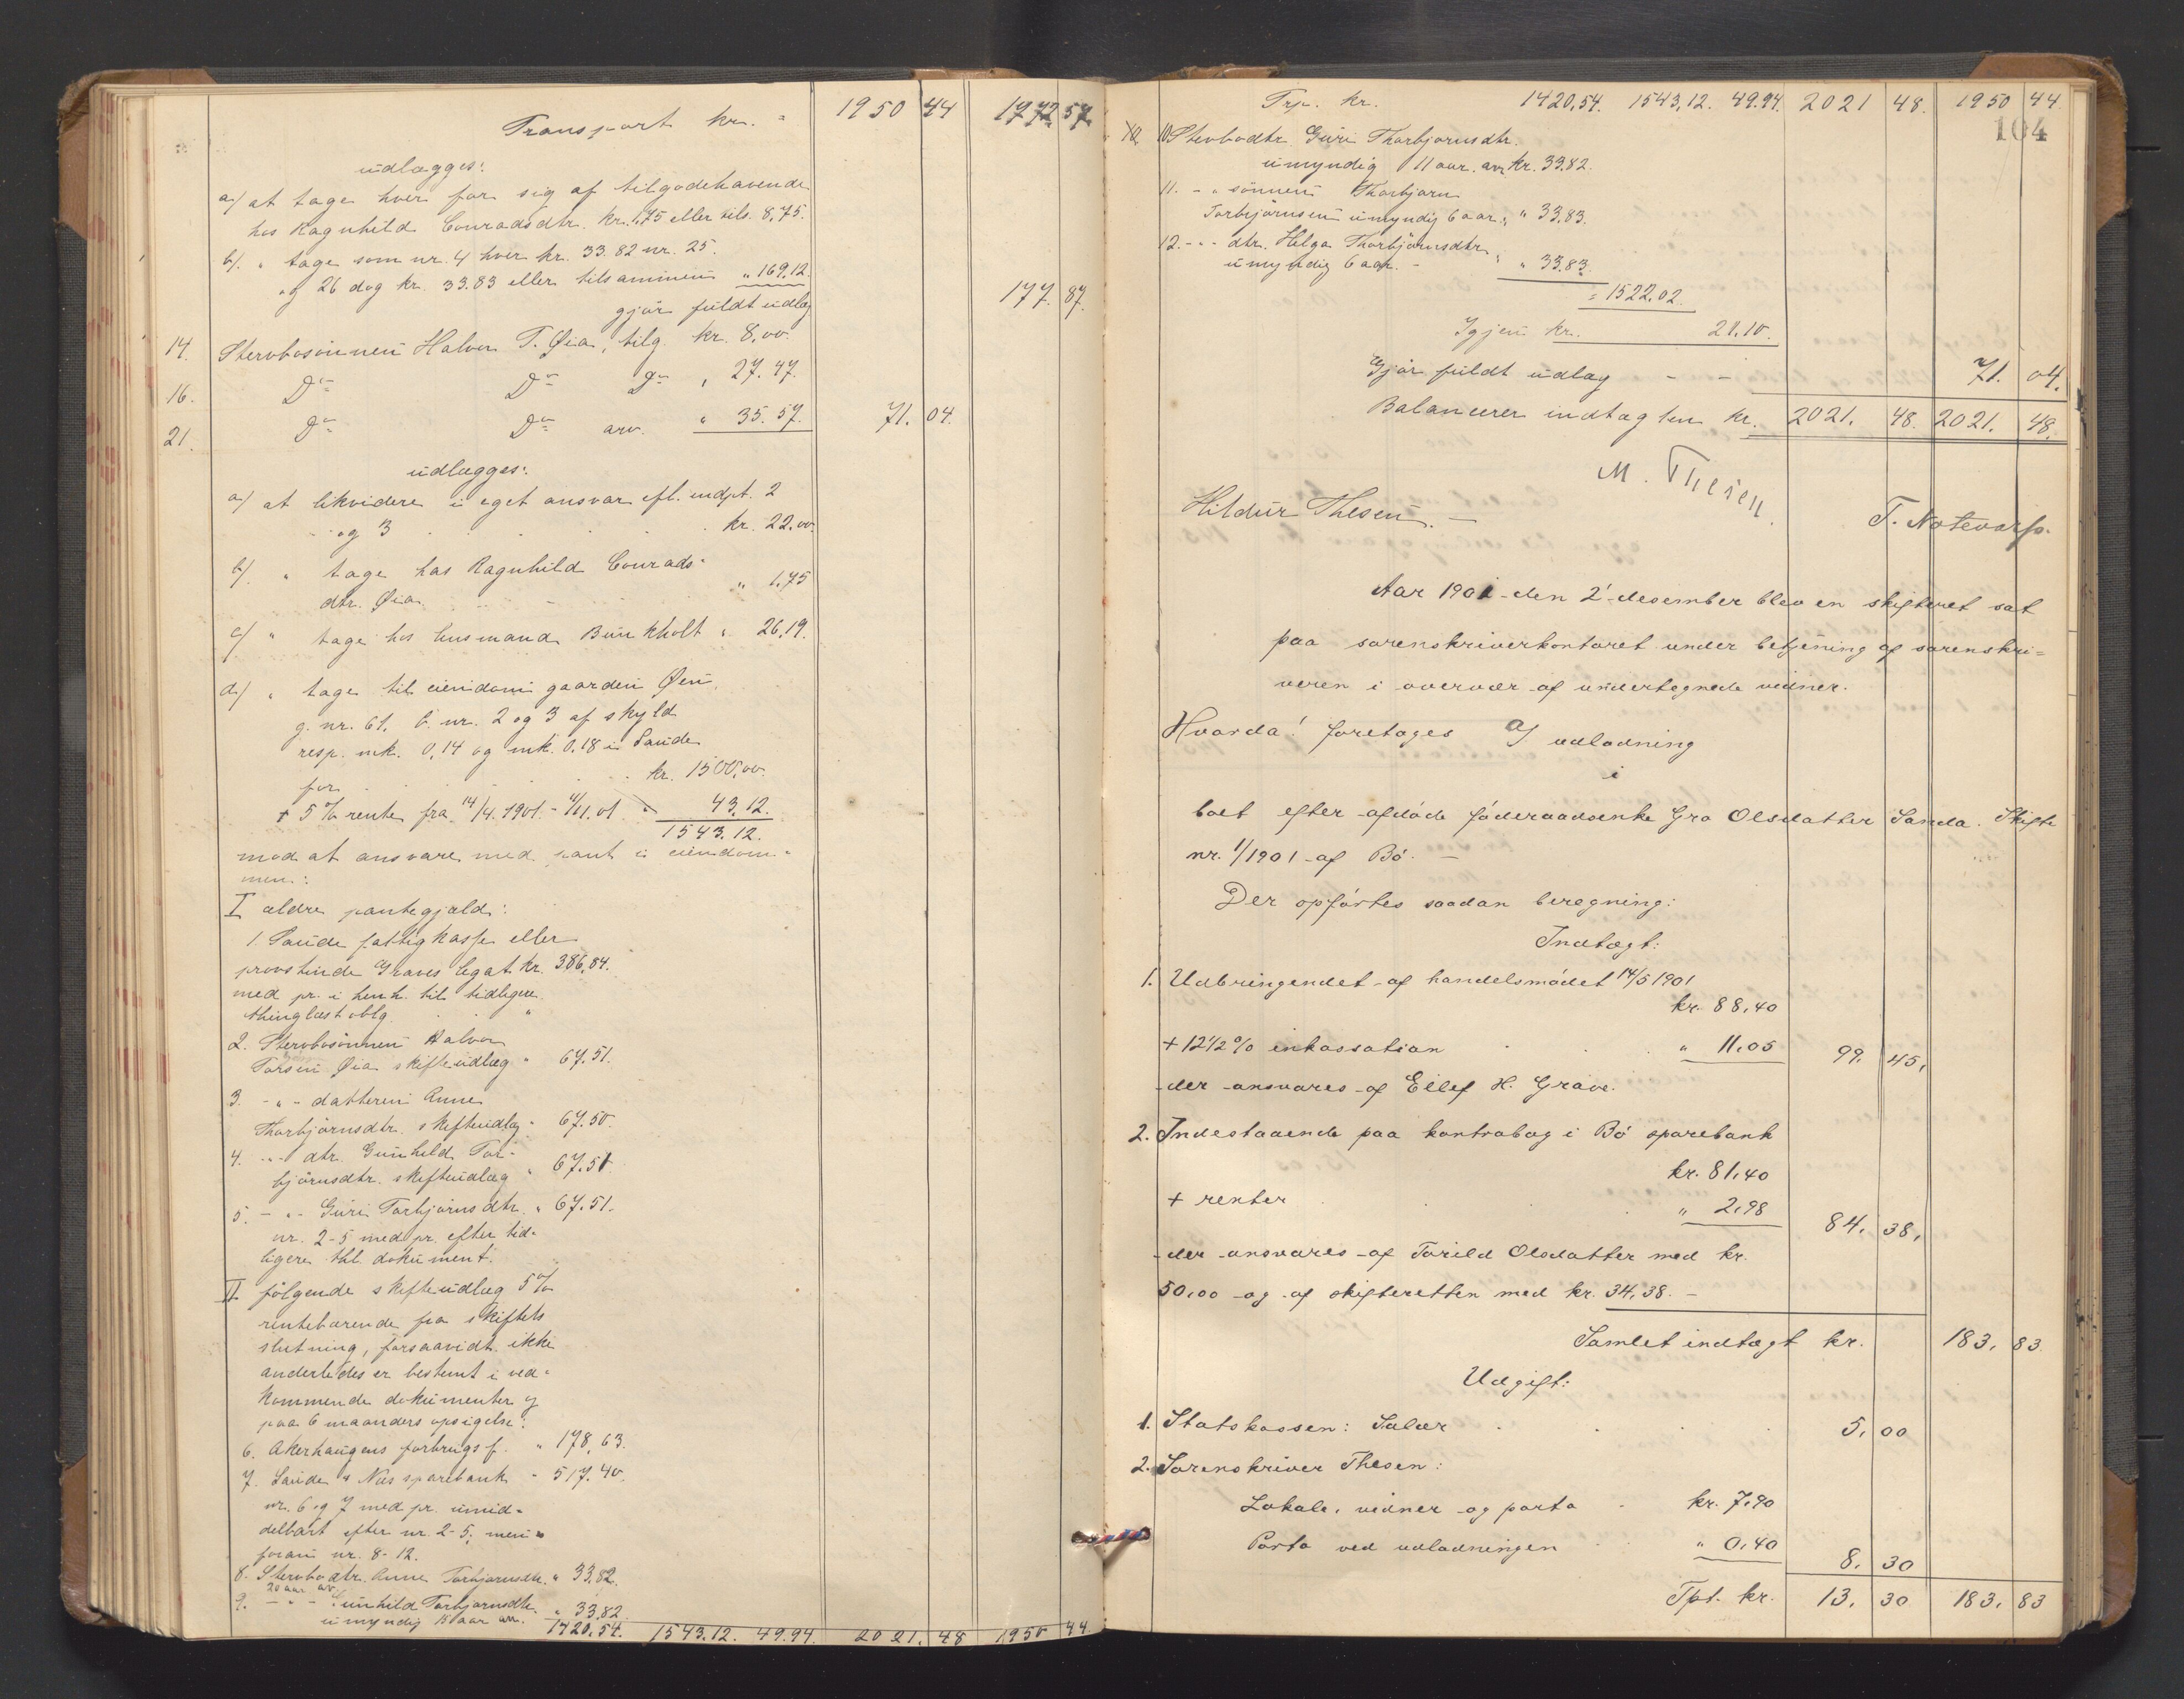 Transport kr. " 1950 44 1772 57.
udlægges:
a/ at tage hver for sig af tilgodehavende
hos Ragnhild Conradsdtr. kr. 1,75 eller tils. 8,75.
b/. " tage som nr. 4 hver kr. 33.82 nr. 25.
og 26 dog kr. 33.83 eller tilsammen " 169,12.
gjør fuldt udlæg 177. 87.
14. Stervbosønnen Halvor T. Øia, tilg. kr. 8,00.
16. Do Do Do , 27.47.
21. Do Do arv. " 35.57. 71. 04.
udlægges:
a/ at likvidere i eget ansvar efl. indpt. 2
og 3 . . . kr. 22.00
b/. " tage hos Ragnhild Conrads-
dtr. Øia. " 1,75
c/ " tage hos husmand Bunkholt " 26,19.
d/ " tage til eiendom gaarden Øen,
g. nr. 61, b. nr. 2 og 3 af skyld
resp. mk. 0,14 og mk. 0,18 i Saude
for . . . kr. 1500,00.
+ 5 % rente fra 14/4. 1901 - 11/11.01 " 43,12.
1543.12.
mod at ansvare med pant i eiendom-
men:
I ældre pantegjæld:
1. Saude fattigkasse eller
provstinde Graves legat kr. 386,84.
med pr. i henh. til tidligere
thinglæst oblg. . "
2. Stervbosønnen Halvor
Torsen Øia skifteudlæg " 67.51.
3. - " - datteren Anne
Thorbjørnsdtr. skifteudlæg " 67.50.
4. - " - dtr. Gunhild Tor-
bjørnsdtr. skifteudlæg " 67.51
5. - " - Guri Torbjørnsdtr. " 67.51.
nr. 2-5 med pr. efter tid-
ligere thl. dokument.
II følgende skifteudlæg 5%
rentebærende fra skiftets
slutning, forsaavidt ikke
anderledes er bestemt i ved-
kommende dokumenter og
paa 6 maanders opsigelse:
6. Akerhaugens forbrugsf. " 178,63.
7. Saude & Næs sparebank " 517.40.
nr. 6 og 7 med pr. umid-
delbart efter nr. 2-5; men
foran nr. 8-12.
8. Stervbodtr. Anne Torbjørnsdtr. " 33,82.
20 aar arv.
9. - " - Gunhild Torbjørnsdtr. " 33,82
umyndig 15 aar arv.
1420.54. 1543.12. 49.94. 2021. 48 1950 44.
Trp. kr. 1420,54. 1543,12. 49.94. 2021 48. 1950 44.
104
10. Stervbodtr. Guri Thorbjørnsdtr.
umyndig 11 aar. arv kr. 33.82.
11. - " sønnen Thorbjørn
Torbjørnsen umyndig 6 aar " " 33,83.
12. - " - dtr. Helga Thorbjørnsdtr.
umyndig 6 aar. - " " 33,83.
= 1522.02.
Igjen kr. 21.10.
Gjør fuldt udlæg - - 71. 04.
Balancerer indtægten kr. 2021. 48. 2021. 48.
M. Thesen.
Hildur Thesen. - T. Notevarp.
Aar 1901 den 2' desember blev en skifteret sat
paa sorenskriverkontoret under betjening af sorenskri-
veren i overvær af undertegnede vidner.
Hvorda! foretoges a/ udlodning
i
boet efter afdøde føderaadsenke Gro Olsdatter Sanda. Skifte
nr. 1/1901 af Bø. -
Der opførtes saadan beregning:
Indtægt:
1. Udbringendet af handelsmødet 14/5 1901
kr. 88,40
+ 12 1/2 % inkassation . . " 11.05 99. 45.
der ansvares af Ellef H. Grave.
2. Indestaaende paa kontrabog i Bø sparebank
kr. 81,40
+ renter . . " 2,98 84. 38.
der ansvares af Torild Olsdatter med kr.
50,00 og af skifteretten med kr. 34,38. -
Samlet indtægt kr. 183. 83.
Udgift:
1. Statskassen: Salær . . . 5. 00
2. Sorenskriver Thesen:
Lokale, vidner og porto . kr. 7,90
Porto ved udlodningen . " 0,40 8. 30
Tpt. kr. 13. 30 183. 83